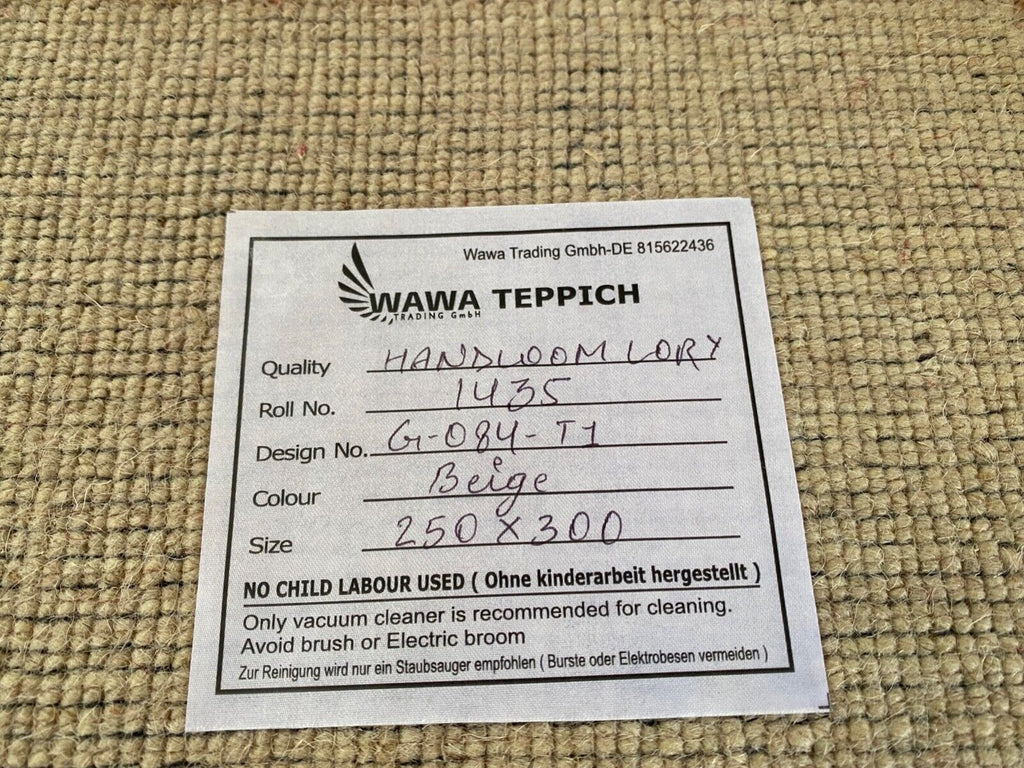 Wawa Trading Gmbh-DE 815622436
WAWA TEPPICH
TRADING GmbH
Quality HANDLOOM LORY
Roll No. 1435
Design No. G-084-T1
Colour Beige
Size 250 X 300
NO CHILD LABOUR USED ( Ohne kinderarbeit hergestellt )
Only vacuum cleaner is recommended for cleaning.
Avoid brush or Electric broom
Zur Reinigung wird nur ein Staubsauger empfohlen ( Burste oder Elektrobesen vermeiden )